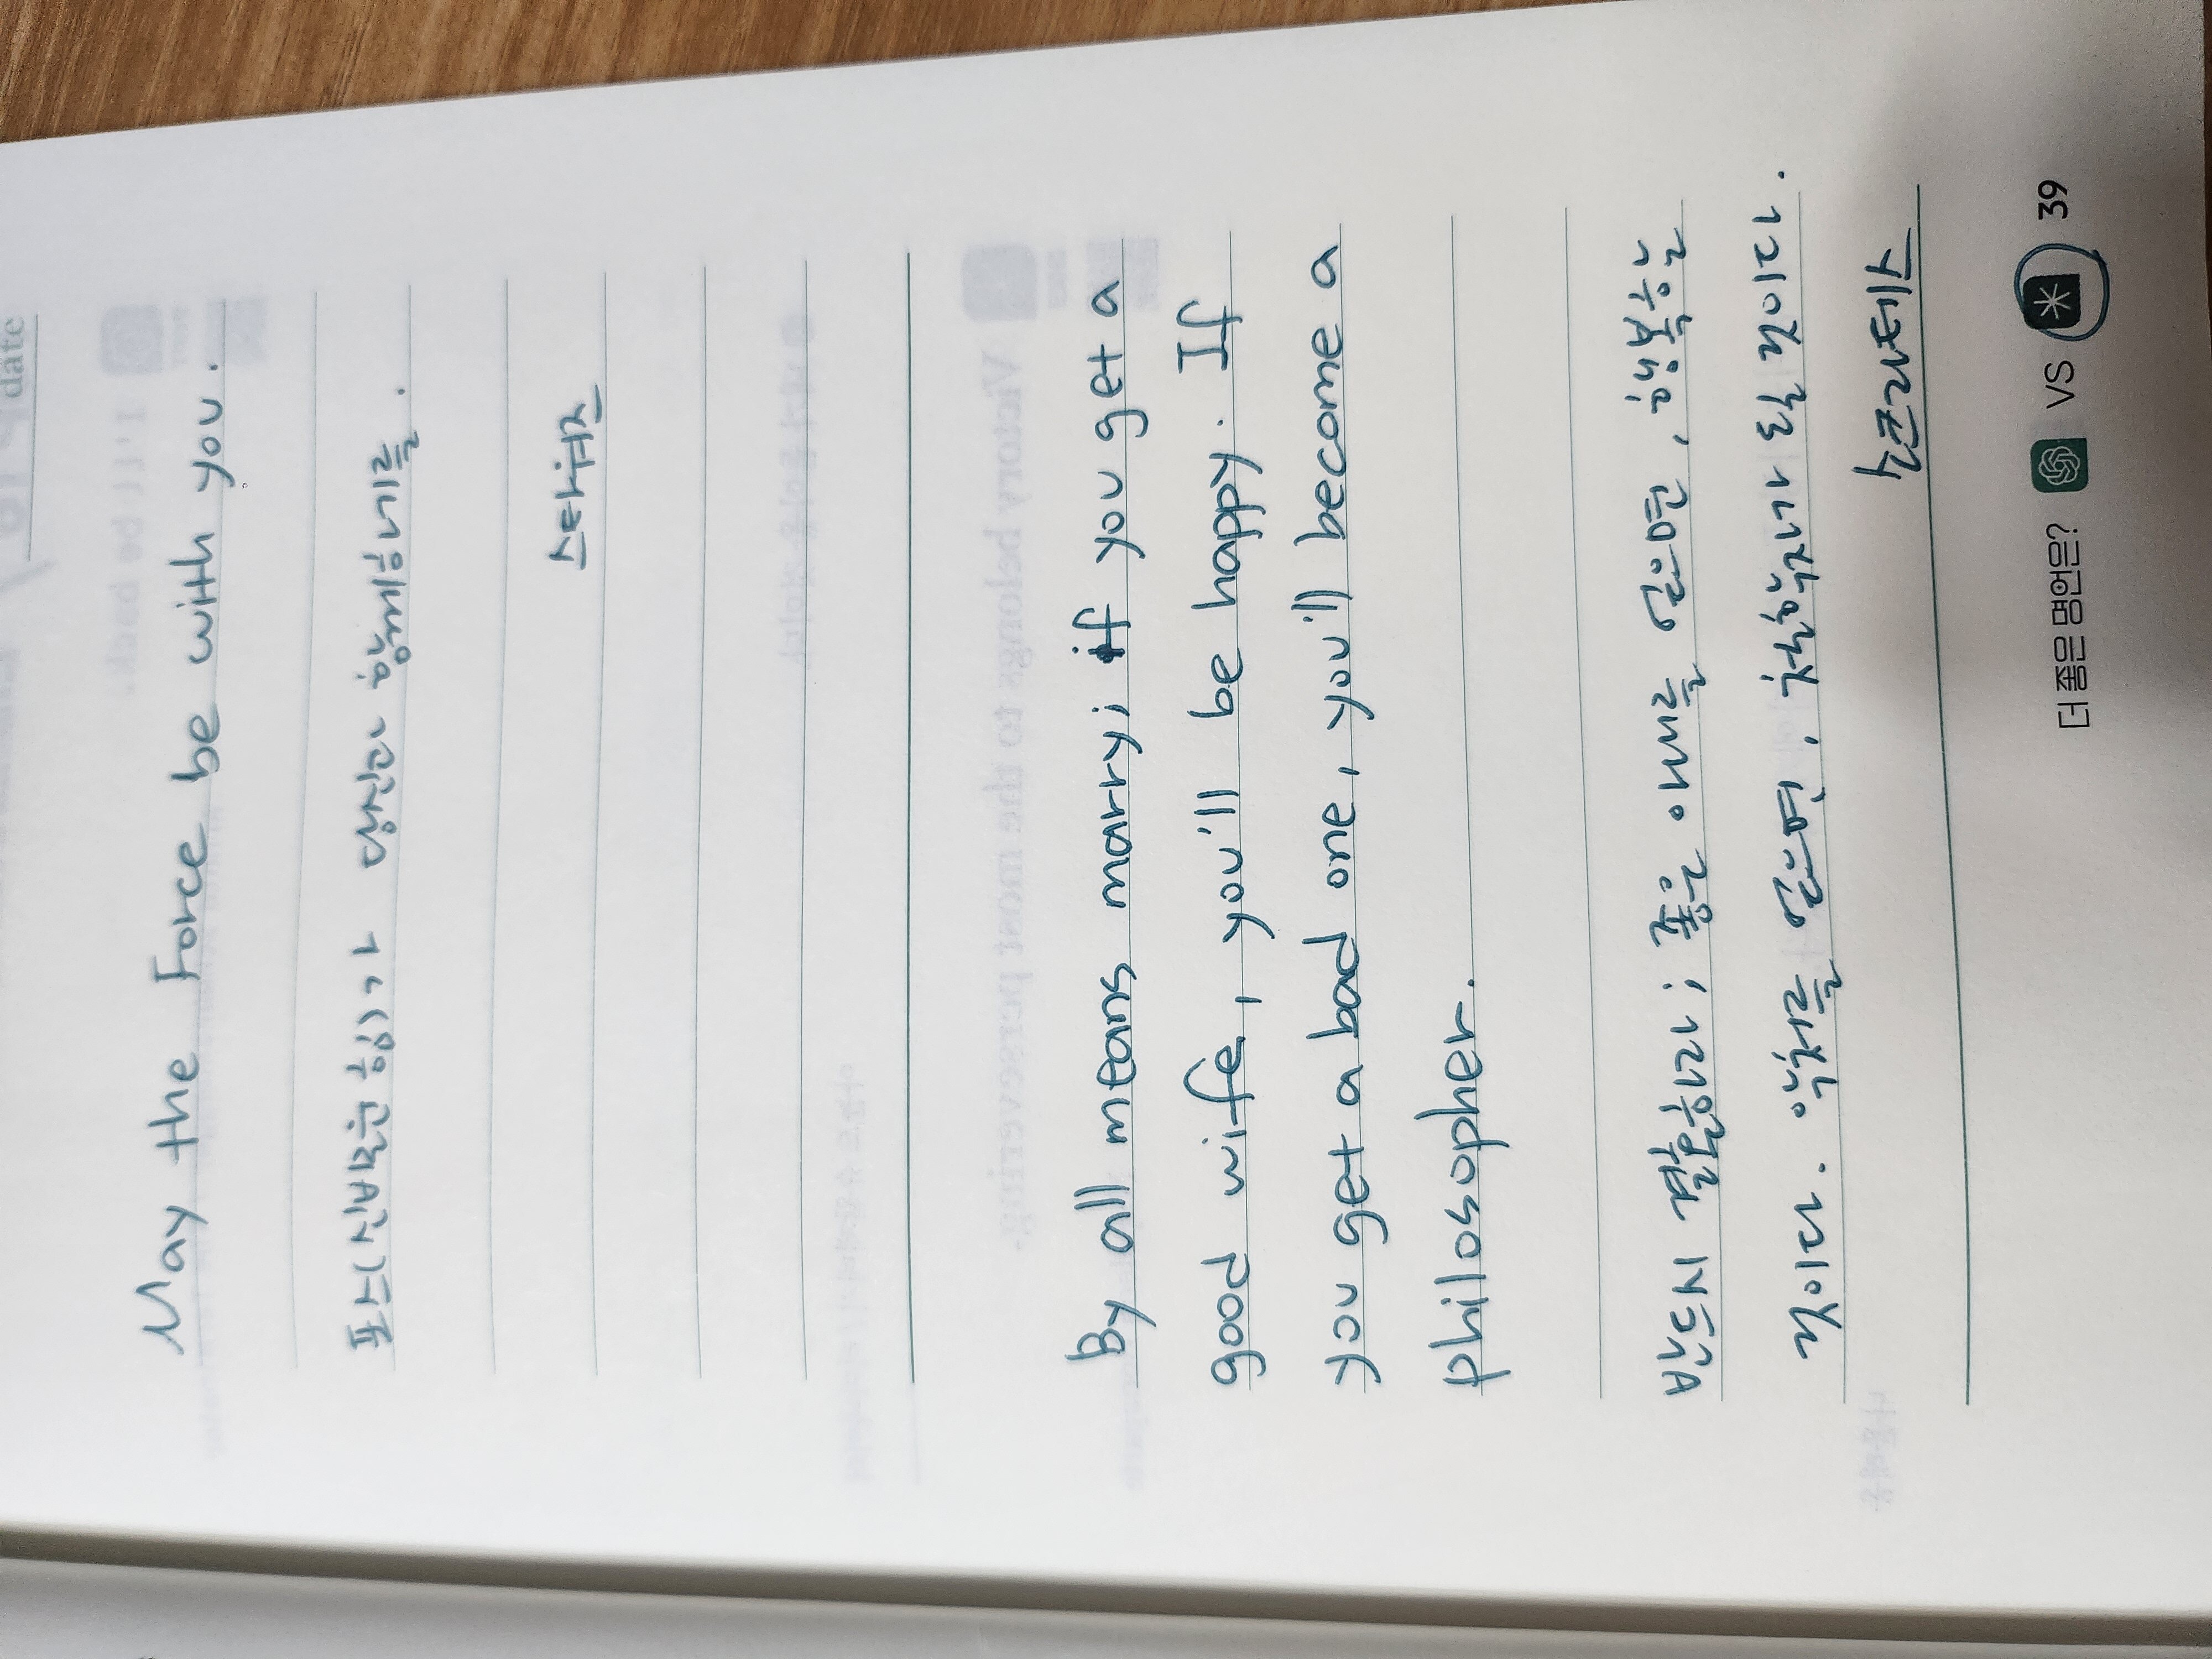 date
May the Force be with you.
포스(신비적인 힘)가 당신과 함께하기를.
스타워즈
By all means marry; if you get a
good wife, you'll be happy. If
you get a bad one, you'll become a
philosopher.
반드시 결혼하거라; 좋은 아내를 얻으면, 행복할
것이다. 악처를 얻으면, 철학자가 될 것이다.
소크라테스
더 좋은 명언은? VS 39